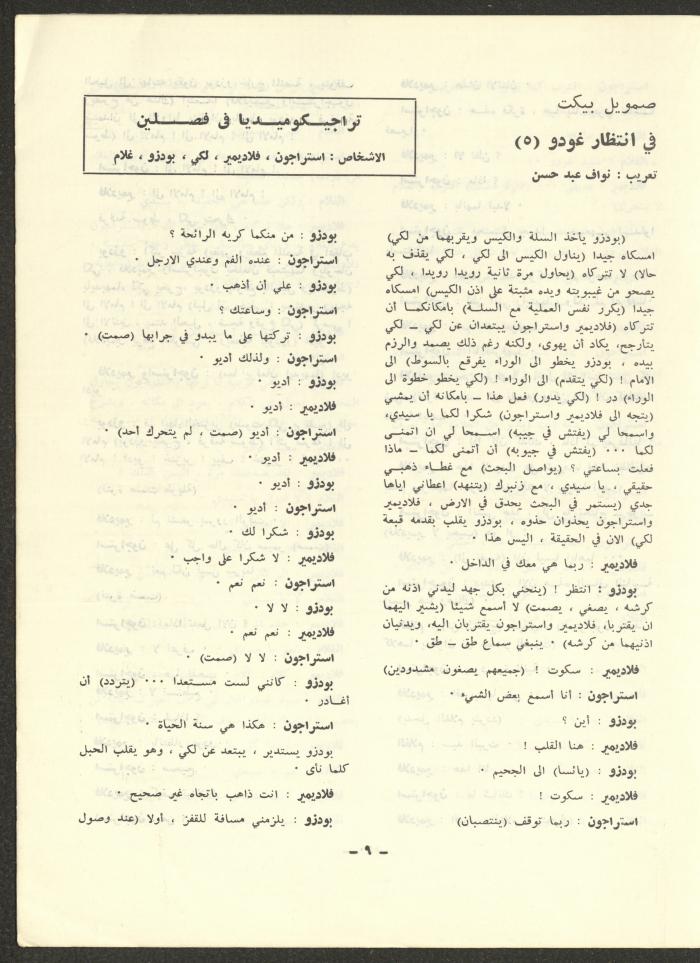 صمويل بيكت
في انتظار غودو (٥)
تعريب : نواف عبد حسن
تراجيـكوميـديا في فصـــلين
الاشخاص : استراجون ، فلاديمير ، لكي ، بودزو ، غلام
(بودزو يأخذ السلة والكيس ويقربهما من لكي)
امسكاه جيدا (يناول الكيس الى لكي ، لكي يقذف به
حالا) لا تتركاه (يحاول مرة ثانية رويدا رويدا ، لكي
يصحو من غيبوبته ويده مثبتة على اذن الكيس) امسكاه
جيدا (يكرر نفس العملية مع السلـة) بامكانكمـا أن
تتركاه (فلاديمير واستراجون يبتعدان عن لكي ــ لكي
يتأرجح، يكاد أن يهوى، ولكنه رغم ذلك يصمد والرزم
بيده ، بودزو يخطو الى الوراء يفرقع بالسوط) الى
الامام ! (لكي يتقدم) الى الوراء ! (لكي يخطو خطوة الى
الوراء) در ! (لكي يدور) فعل هذا ــ بامكانه أن يمشي
(يتجه الى فلاديمير واستراجون) شكرا لكما يا سيدي،
واسمحا لي (يفتش في جيبه) اسـمحا لي ان اتمنـى
لكما ٠٠٠ (يفتش في جيوبه) أن أتمنى لكما ــ ماذا
فعلت بساعتي ؟ (يواصل البحث) مع غطـاء ذهبـي
حقيقي ، يا سيدي ، مع زنبرك (يتنهد) اعطاني اياها
جدي (يستمر في البحث يحدق في الارض ، فلاديمير
واستراجون يحذوان حذوه ، بودزو يقلب بقدمه قبعة
لكي) الان في الحقيقة ، اليس هذا ٠
فلاديمير : ربما هي معك في الداخل ٠
بودزو : انتظر ! (ينحني بكل جهد ليدني اذنه من
كرشه ، يصغي ، يصمت) لا أسمع شيئا (يشير اليهما
ان يقتربا، فلاديمير واستراجون يقتربان اليه، ويدنيان
اذنيهما من كرشه) ٠ ينبغي سماع طق ــ طق ٠
فلاديمير : سكوت ! (جميعهم يصغون مشدودين)
استراجون : أنا أسمع بعض الشيء ٠
بودزو : أين ؟
فلاديمير : هنا القلب !
بودزو : (يائسا) الى الجحيم ٠
فلاديمير : سكوت !
استراجون : ربما توقف (ينتصبان)
بودزو : من منكما كريه الرائحة ؟
استراجون : عنده الفم وعندي الارجل ٠
بودزو : علي أن أذهب ٠
استراجون : وساعتك ؟
بودزو : تركتها على ما يبدو في جرابها (صمت) ٠
استراجون : ولذلك أديو ٠
بودزو : أديو ٠
فلاديمير : أديو ٠
استراجون : أديو (صمت ، لم يتحرك أحد) ٠
فلاديمير : أديو ٠
بودزو : أديو ٠
استراجون : أديو ٠
بودزو : شكرا لك ٠
فلاديمير : لا شكرا على واجب ٠
استراجون : نعم نعم ٠
بودزو : لا لا ٠
فلاديمير : نعم نعم ٠
استراجون : لا لا (صمت) ٠
بودزو : كأنني لست مستـعدا ٠٠٠ (يتردد) أن
أغـادر ٠
استراجون : هكذا هي سنة الحياة ٠
بودزو يستدير ، يبتعد عن لكي ، وهو يقلب الحبل
كلما نأى ٠
فلاديمير : انت ذاهب باتجاه غير صحيح ٠
بودزو : يلزمني مسافة للقفز ، أولا (عند وصول
ــ ٩ ــ